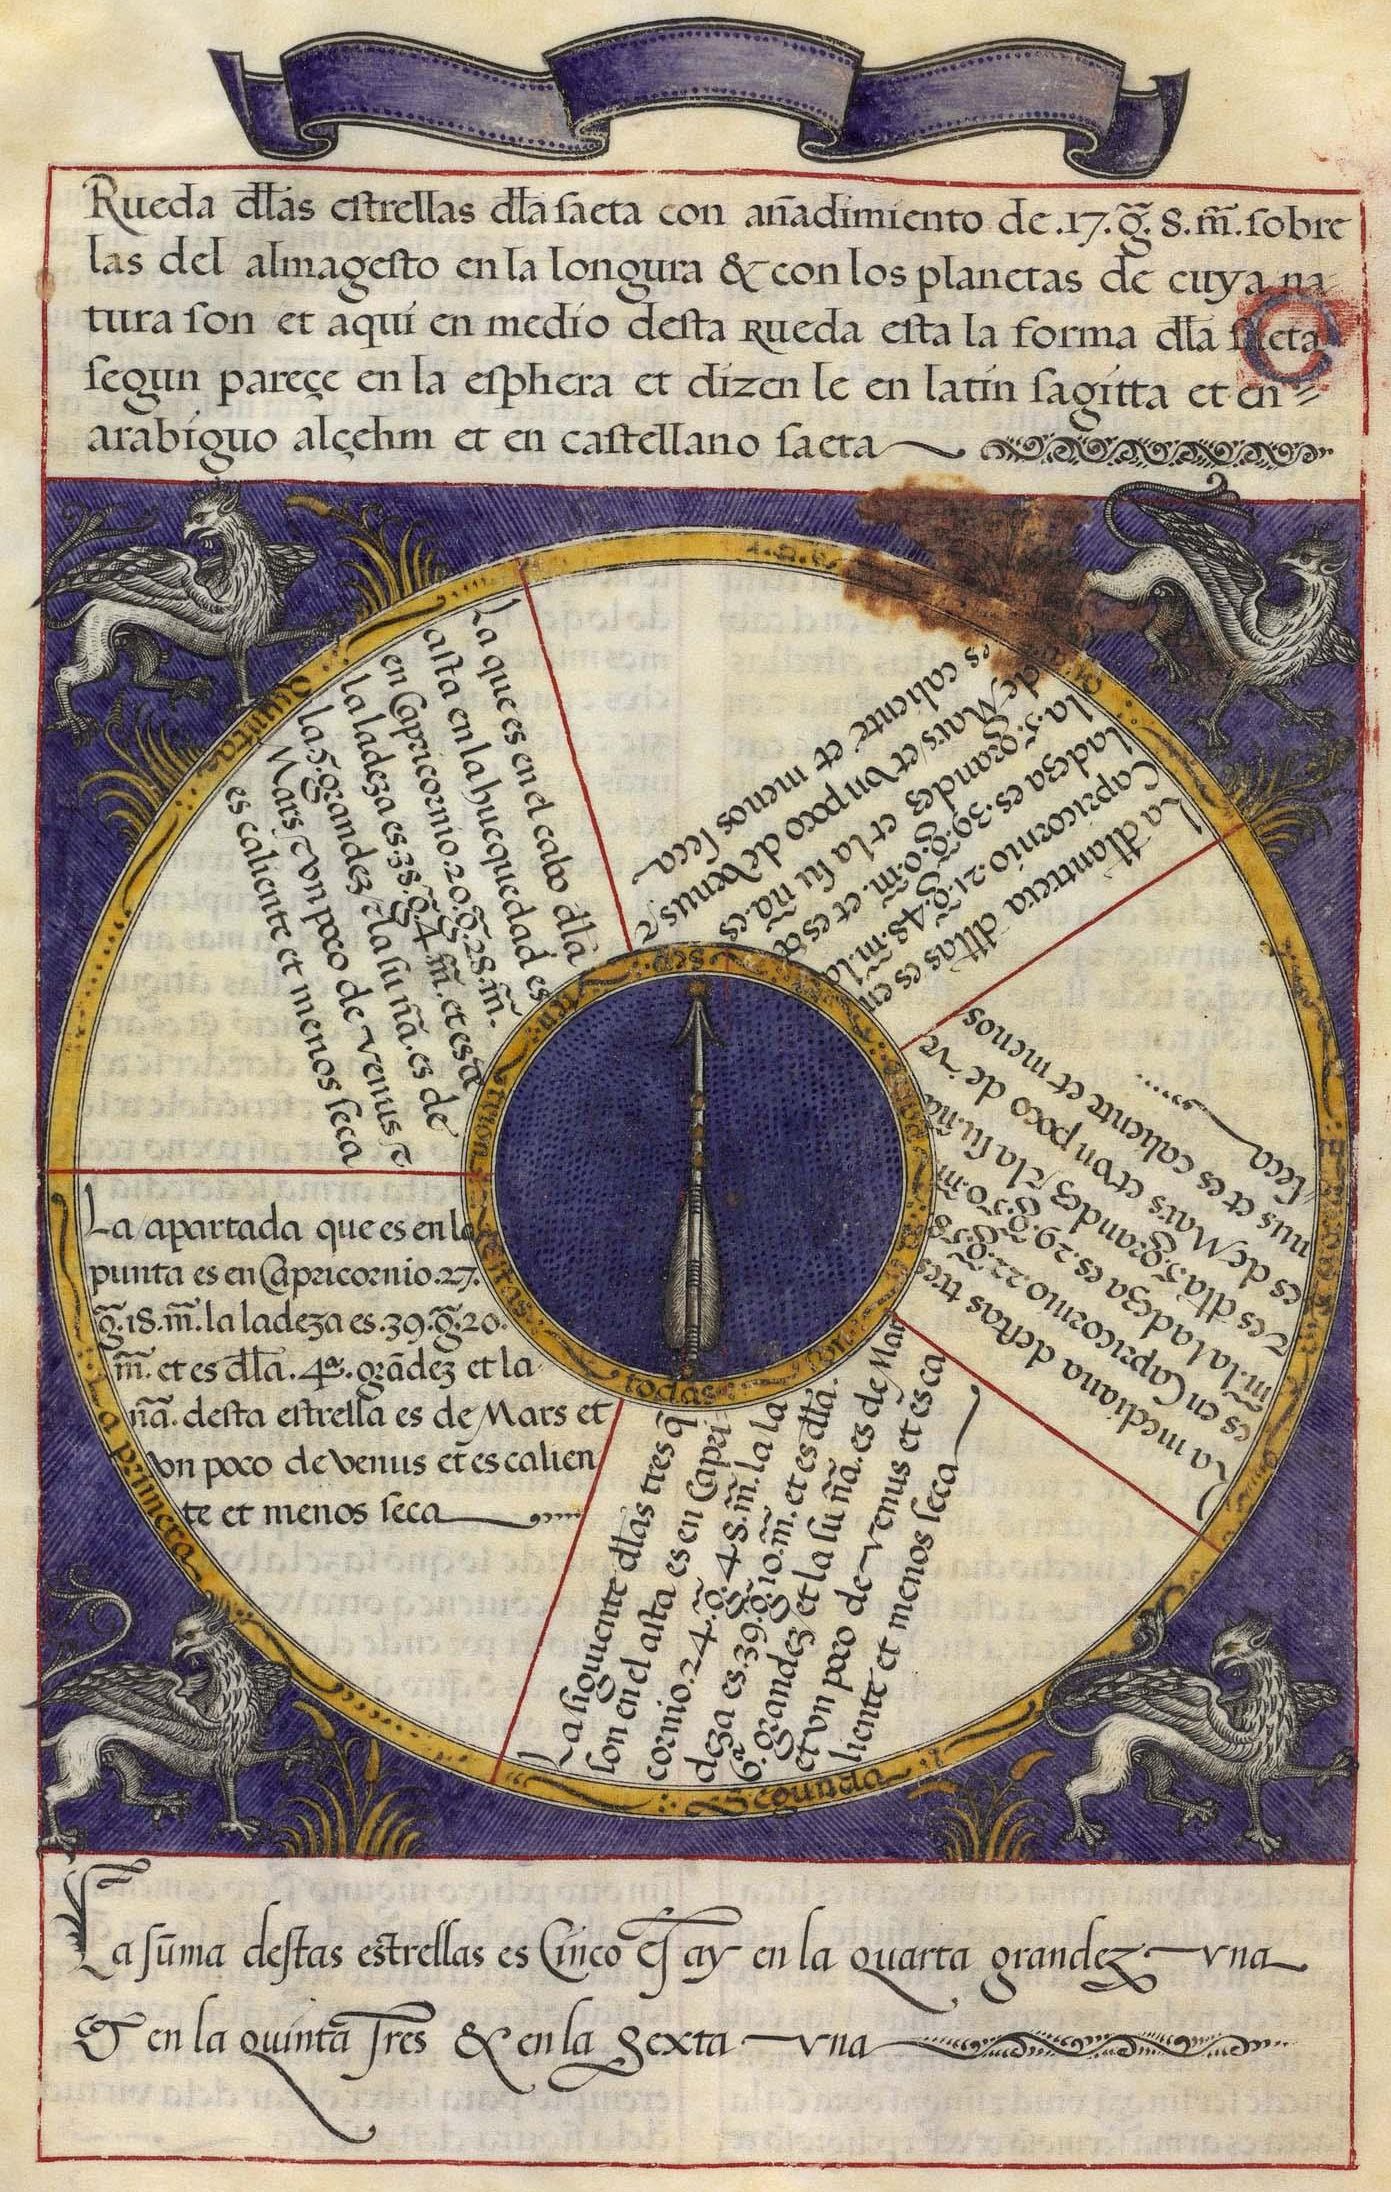 Rueda dłas estrellas dła saeta con añadimiento de .17. g̃. 8. m̃. sobre
las del almagesto en la longura & con los planetas de cuya na
tura son et aqui en medio desta Rueda esta la forma dła saeta
segun pareçe en la esphera et dizen le en latin sagitta et en =
arabiguo alçehm et en castellano saeta
La apartada que es en la
punta es en Capricornio .27.
g̃. 18. m̃. la ladeza es .39. g̃. 20.
m̃. et es dła .4ª. grãdez et la
ña. desta estrella es de Mars et
vn poco de venus et es calien
te et menos seca
a primera
La siguiente dłas tres q̃
son en el asta es en Capri
cornio .24. g̃. 48. m̃. la la
deza es .39. g̃. 10. m̃. et es dła.
6ª. grandez et la su ña. es de Mar
et vn poco de venus et es ca
liente et menos seca
Segunda
La mediana destas tres
es en Capricornio 22. g̃. 58
m̃. la ladeza es .29. g̃. 50. m̃
τ es dła 5. grandez τ la su ña
es de Mars et vn poco de ve
nus et es caliente et menos
seca
La dlantrera dłas es en
Capricornio .21. g̃. 48. m̃. la
ladeza es .39. g̃. 0. m̃. et es đ
la .5. grandez et la su ña. es
de Mars et vn poco de venus τ
es caliente et menos seca
La que es en el cabo dła
asta en la huequedad es
en Capricornio .20. g̃. 28. m̃.
la ladeza es .38. g̃. 4. m̃. et es đ
la .5. grandez τ la su ña. es de
Mars τ vn poco de venus τ
es caliente et menos seca
Quinta
todas son
La sũma destas estrellas es Cinco q̃ ay en la quarta grandez vna
& en la quinta Tres & en la sexta vna